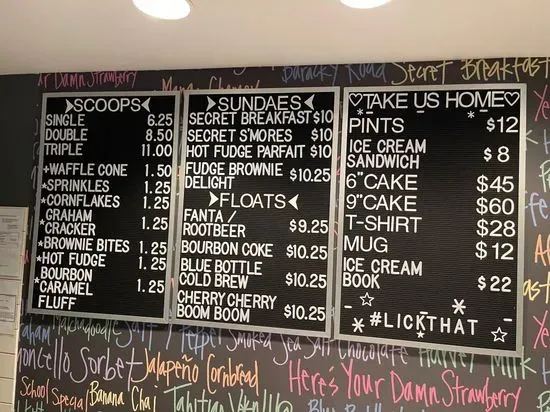 ar Damn Strawberry
Baracky Road
Secret Breakfast
SCOOPS
SINGLE 6.25
DOUBLE 8.50
TRIPLE 11.00
+WAFFLE CONE 1.50
*SPRINKLES 1.25
*CORNFLAKES 1.25
GRAHAM
*CRACKER 1.25
*BROWNIE BITES 1.25
*HOT FUDGE 1.25
*BOURBON
CARAMEL 1.25
FLUFF
SUNDAES
SECRET BREAKFAST $10
SECRET S'MORES $10
HOT FUDGE PARFAIT $10
FUDGE BROWNIE
DELIGHT $10.25
FLOATS
FANTA /
ROOTBEER $9.25
BOURBON COKE $10.25
BLUE BOTTLE
COLD BREW $10.25
CHERRY CHERRY
BOOM BOOM $10.25
♡TAKE US HOME♡
PINTS $12
ICE CREAM
SANDWICH $8
6"CAKE $45
9"CAKE $60
T-SHIRT $28
MUG $12
ICE CREAM
BOOK $22
#LICKTHAT
Salt & Pepper
Smoked Sea Salt Chocolate
Harvey Milk
Sorbet
Jalapeño Cornbread
Here's Your Damn Strawberry
School Special
Banana Chai
Tahitian Vanilla